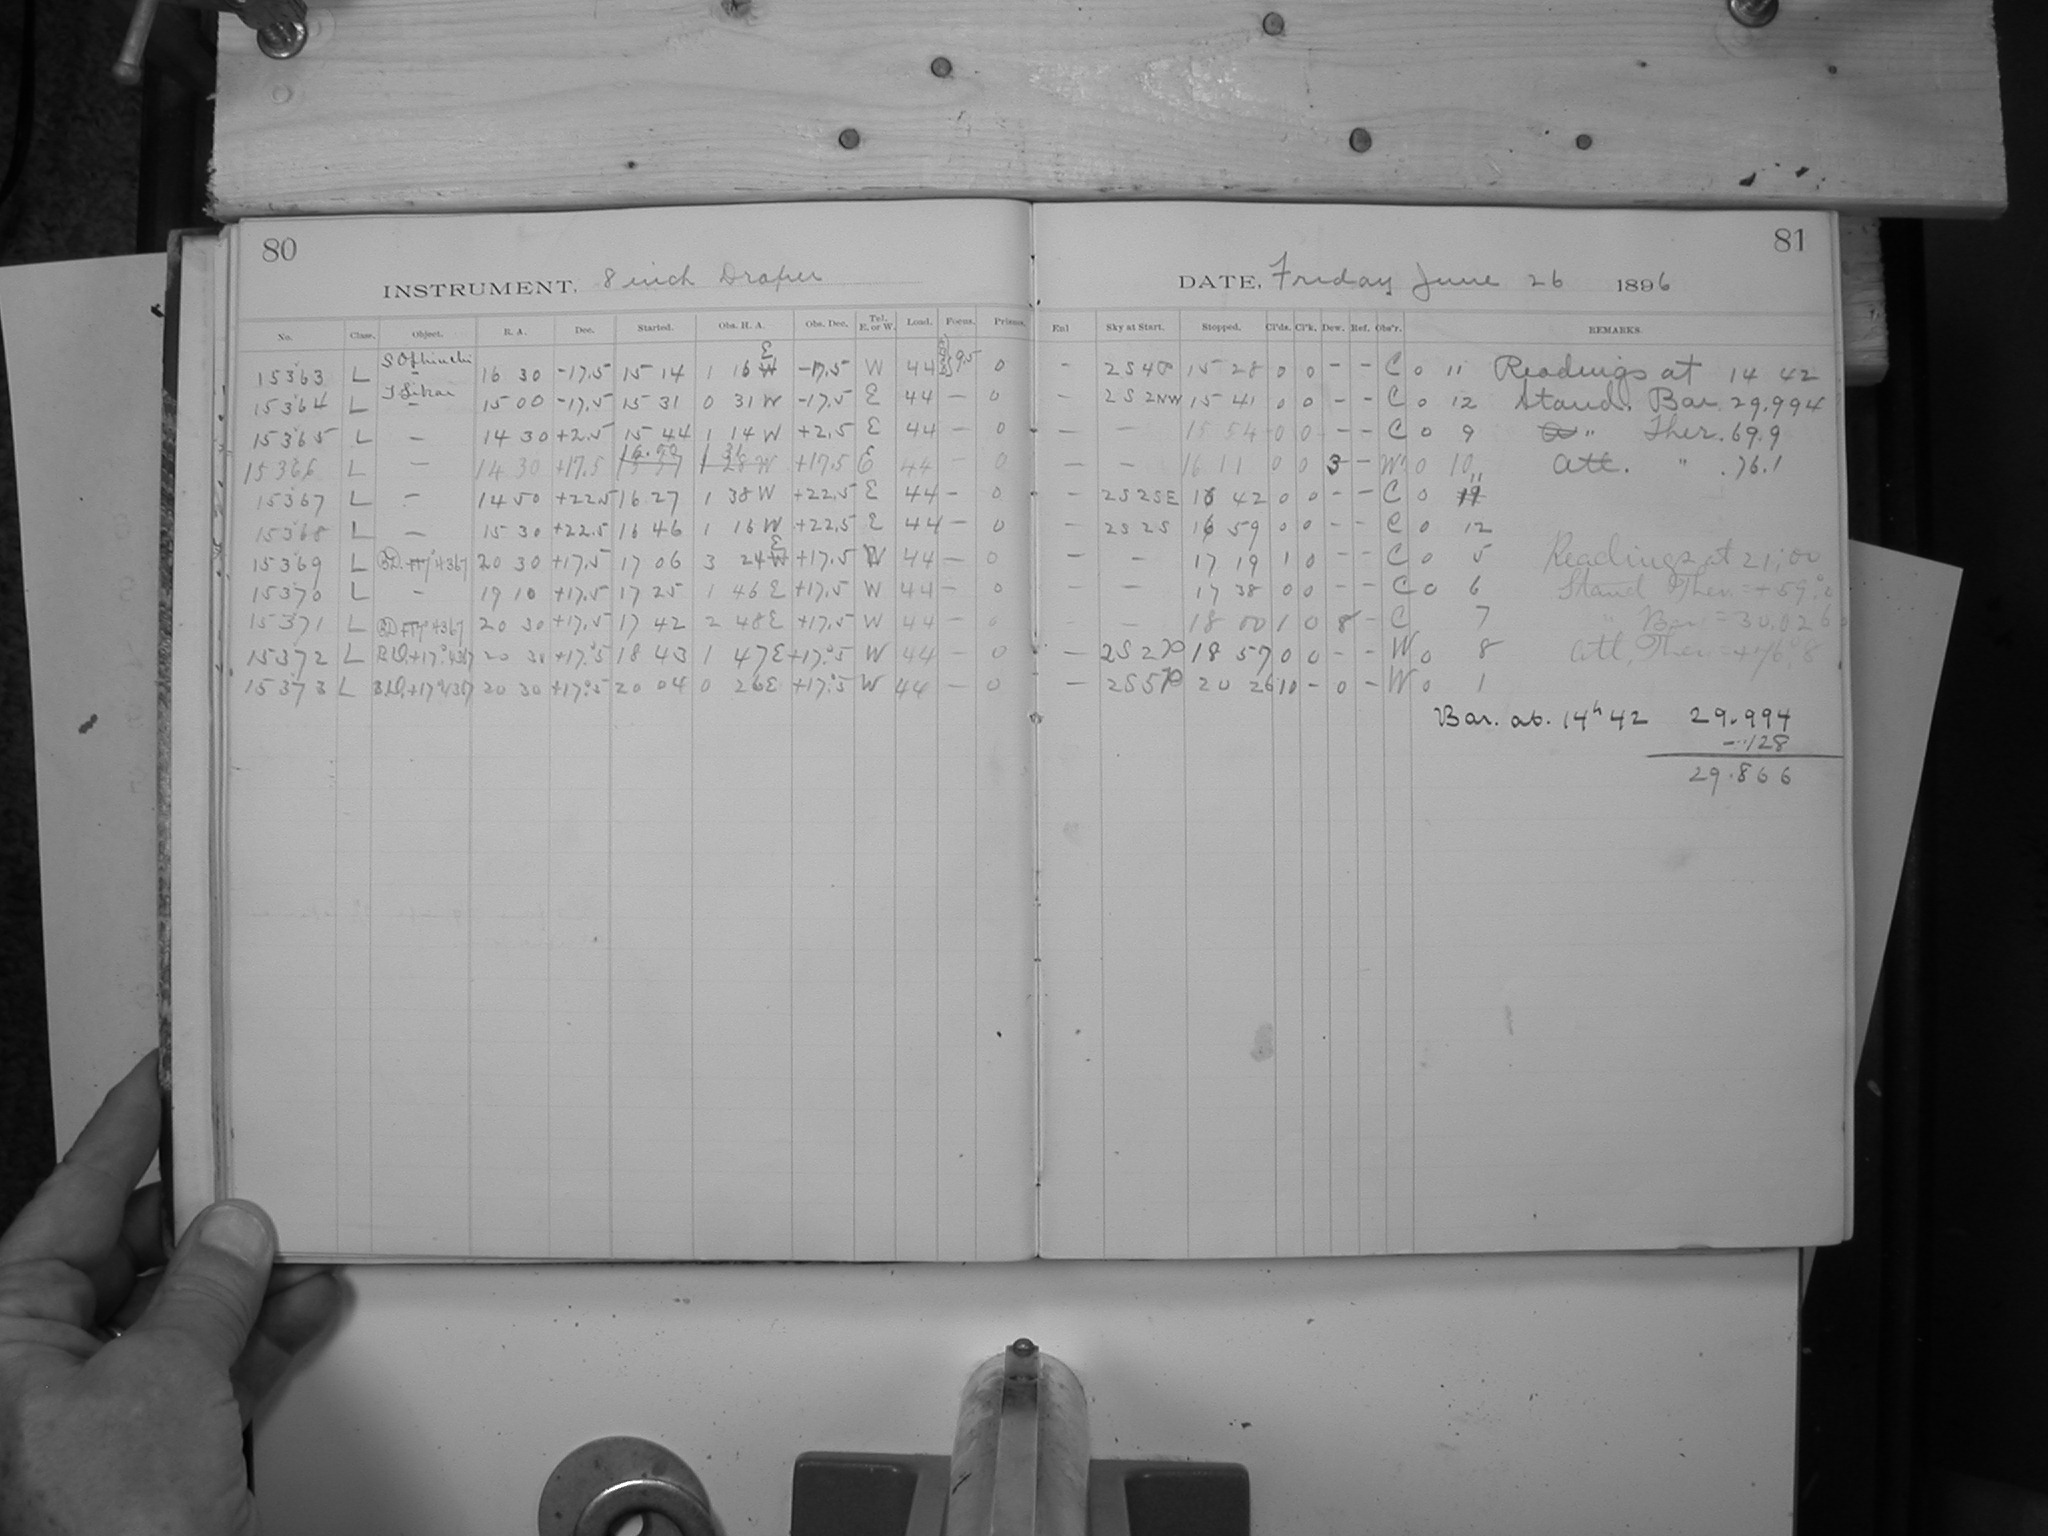 80
INSTRUMENT. 8 inch Draper
No. Class. Object. R. A. Dec. Started. Obs. H. A. Obs. Dec. Tel. E. or W. Load. Focus. Prisms.
15363 L S Ophiuchi 16 30 -17.5 15 14 1 16 E -17.5 W 44 0
15364 L 15 00 -17.5 15 31 0 31 W -17.5 E 44 — 0
15365 L — 14 30 +2.5 15 44 1 14 W +2.5 E 44 — 0
15366 L — 14 30 +17.5 W +17.5 E 44 — 0
15367 L — 14 50 +22.5 16 27 1 38 W +22.5 E 44 — 0
15368 L — 15 30 +22.5 16 46 1 16 W +22.5 E 44 — 0
15369 L 20 30 +17.5 17 06 3 24 E +17.5 W 44 — 0
15370 L — 19 10 +17.5 17 25 1 46 E +17.5 W 44 — 0
15371 L 20 30 +17.5 17 42 2 48 E +17.5 W 44 — 0
15372 L B.D.+17°4367 20 30 +17°.5 18 43 1 47 E +17°.5 W 44 — 0
15373 L B.D.+17°4367 20 30 +17°.5 20 04 0 26 E +17°.5 W 44 — 0
81
DATE. Friday June 26 1896
Enl Sky at Start. Stopped. Cl'ds. Cl'k. Dew. Ref. Obs'r. REMARKS.
— 2S4 15 28 0 0 - - C 0 11 Readings at 14 42
— 2S2NW 15 41 0 0 - - C 0 12 Stand. Bar. 29.994
— — 15 54 0 0 - - C 0 9 " Ther. 69.9
— — 16 11 0 0 3 - W 0 10 Att. " .76.1
— 2S2SE 16 42 0 0 - - C 0 11
— 2S2S 16 59 0 0 - - C 0 12
— — 17 19 1 0 - - C 0 5 Readings at 21:00
— — 17 38 0 0 - - C 0 6 Stand Ther. = +59°.2
— — 18 00 1 0 8 - C 7 " Bar = 30.026
— 18 57 0 0 - - W 0 8 Att. Ther. = +76°.8
— 20 26 10 - 0 - W 0 1
Bar. at. 14ʰ 42 29.994
-.128
29.866